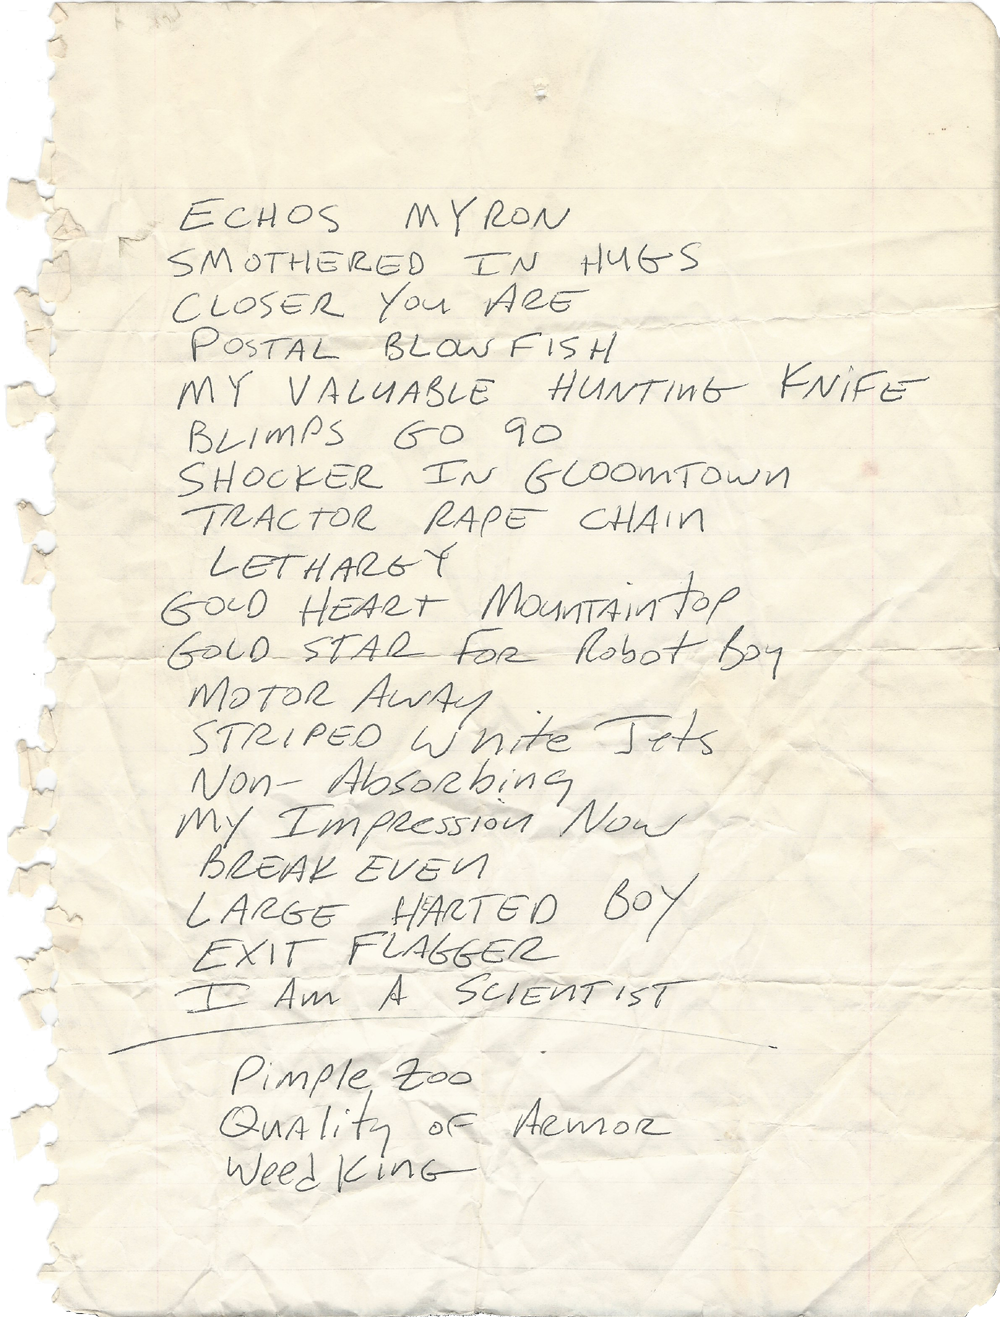 ECHOS MYRON
SMOTHERED IN HUGS
CLOSER YOU ARE
POSTAL BLOWFISH
MY VALUABLE HUNTING KNIFE
BLIMPS GO 90
SHOCKER IN GLOOMTOWN
TRACTOR RAPE CHAIN
LETHARGY
GOLD HEART MOUNTAINTOP
GOLD STAR FOR Robot Boy
MOTOR AWAY
STRIPED White Jets
Non-Absorbing
My Impression Now
BREAK EVEN
LARGE HARTED BOY
EXIT FLAGGER
I AM A SCIENTIST
Pimple Zoo
Quality OF ARMOR
Weed King